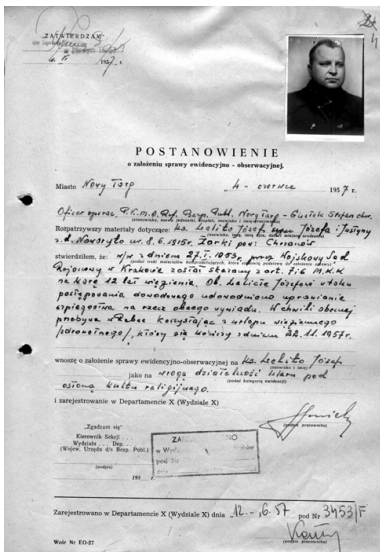 „ZATWIERDZAM"
4. VI 1957 r.
POSTANOWIENIE
o założeniu sprawy ewidencyjno - obserwacyjnej.
Miasto Nowy Targ 4- czerwca 1957 r.
Oficer operac. P.K.M.O. Ref. Bezp. Publ. Nowy Targ - Gusiek Stefan chor.
Rozpatrzywszy materiały dotyczące: ks. Lelito Józef syn Józefa i Justyny
z d. ur. 8.6.1915r. Żarki pow: Chrzanów
stwierdziłem, że: w/w z dniem 27.I.1953, przez Wojskowy Sąd
Rejonowy w Krakowie został skazany z art. 7 i 6 M.K.K
na karę 12 lat więzienia. Ob. Lelicie Józefowi w toku
postępowania dowodowego udowodniono uprawianie
szpiegostwa na rzecz obcego wywiadu. W chwili obecnej
przebywa w Rabce korzystając z urlopu więziennego
/zdrowotnego/, który się kończy z dniem 22.11.1957r.
wnoszę o założenie sprawy ewidencyjno-obserwacyjnej na ks. Lelito Józef
jako na wrogą działalność kleru pod
(podać kategorię ewidencji)
osłoną kultu religijnego.
i zarejestrowanie w Departamencie X (Wydziale X)
(podpis pracownika)
„Zgadzam się"
Kierownik Sekcji
Wydziału . . . Dep. . . .
(Wojew. Urzędu d/s Bezp. Publ.)
(podpis)
195 r.
Zarejestrowano w Departamencie X (Wydziale X) dnia „12.- „6.57 pod Nr 3453/F
(podpis pracownika)
Wzór Nr EO-27